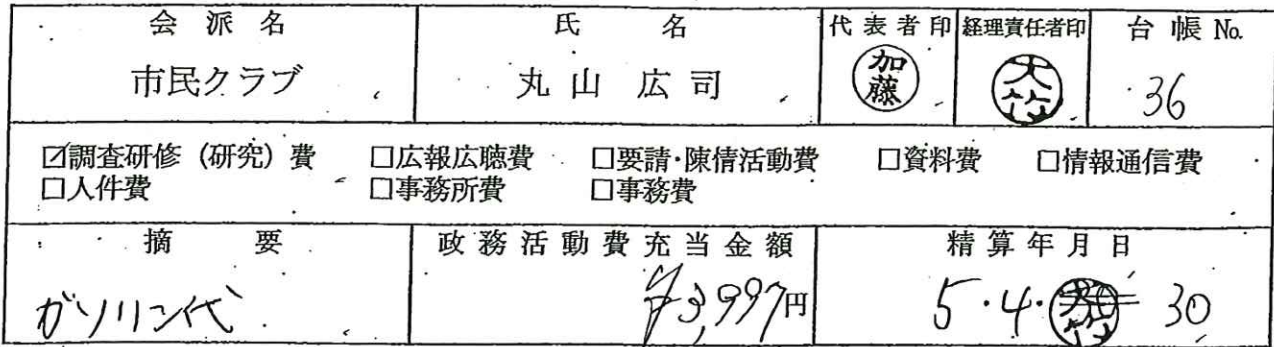 会派名 氏名 代表者印 経理責任者印 台帳No.
市民クラブ 丸山広司 加藤 大竹 36
☑調査研修(研究)費 □広報広聴費 □要請・陳情活動費 □資料費 □情報通信費
□人件費 □事務所費 □事務費
摘要 政務活動費充当金額 精算年月日
ガソリン代 ¥3,997円 5・4・ 大竹 30